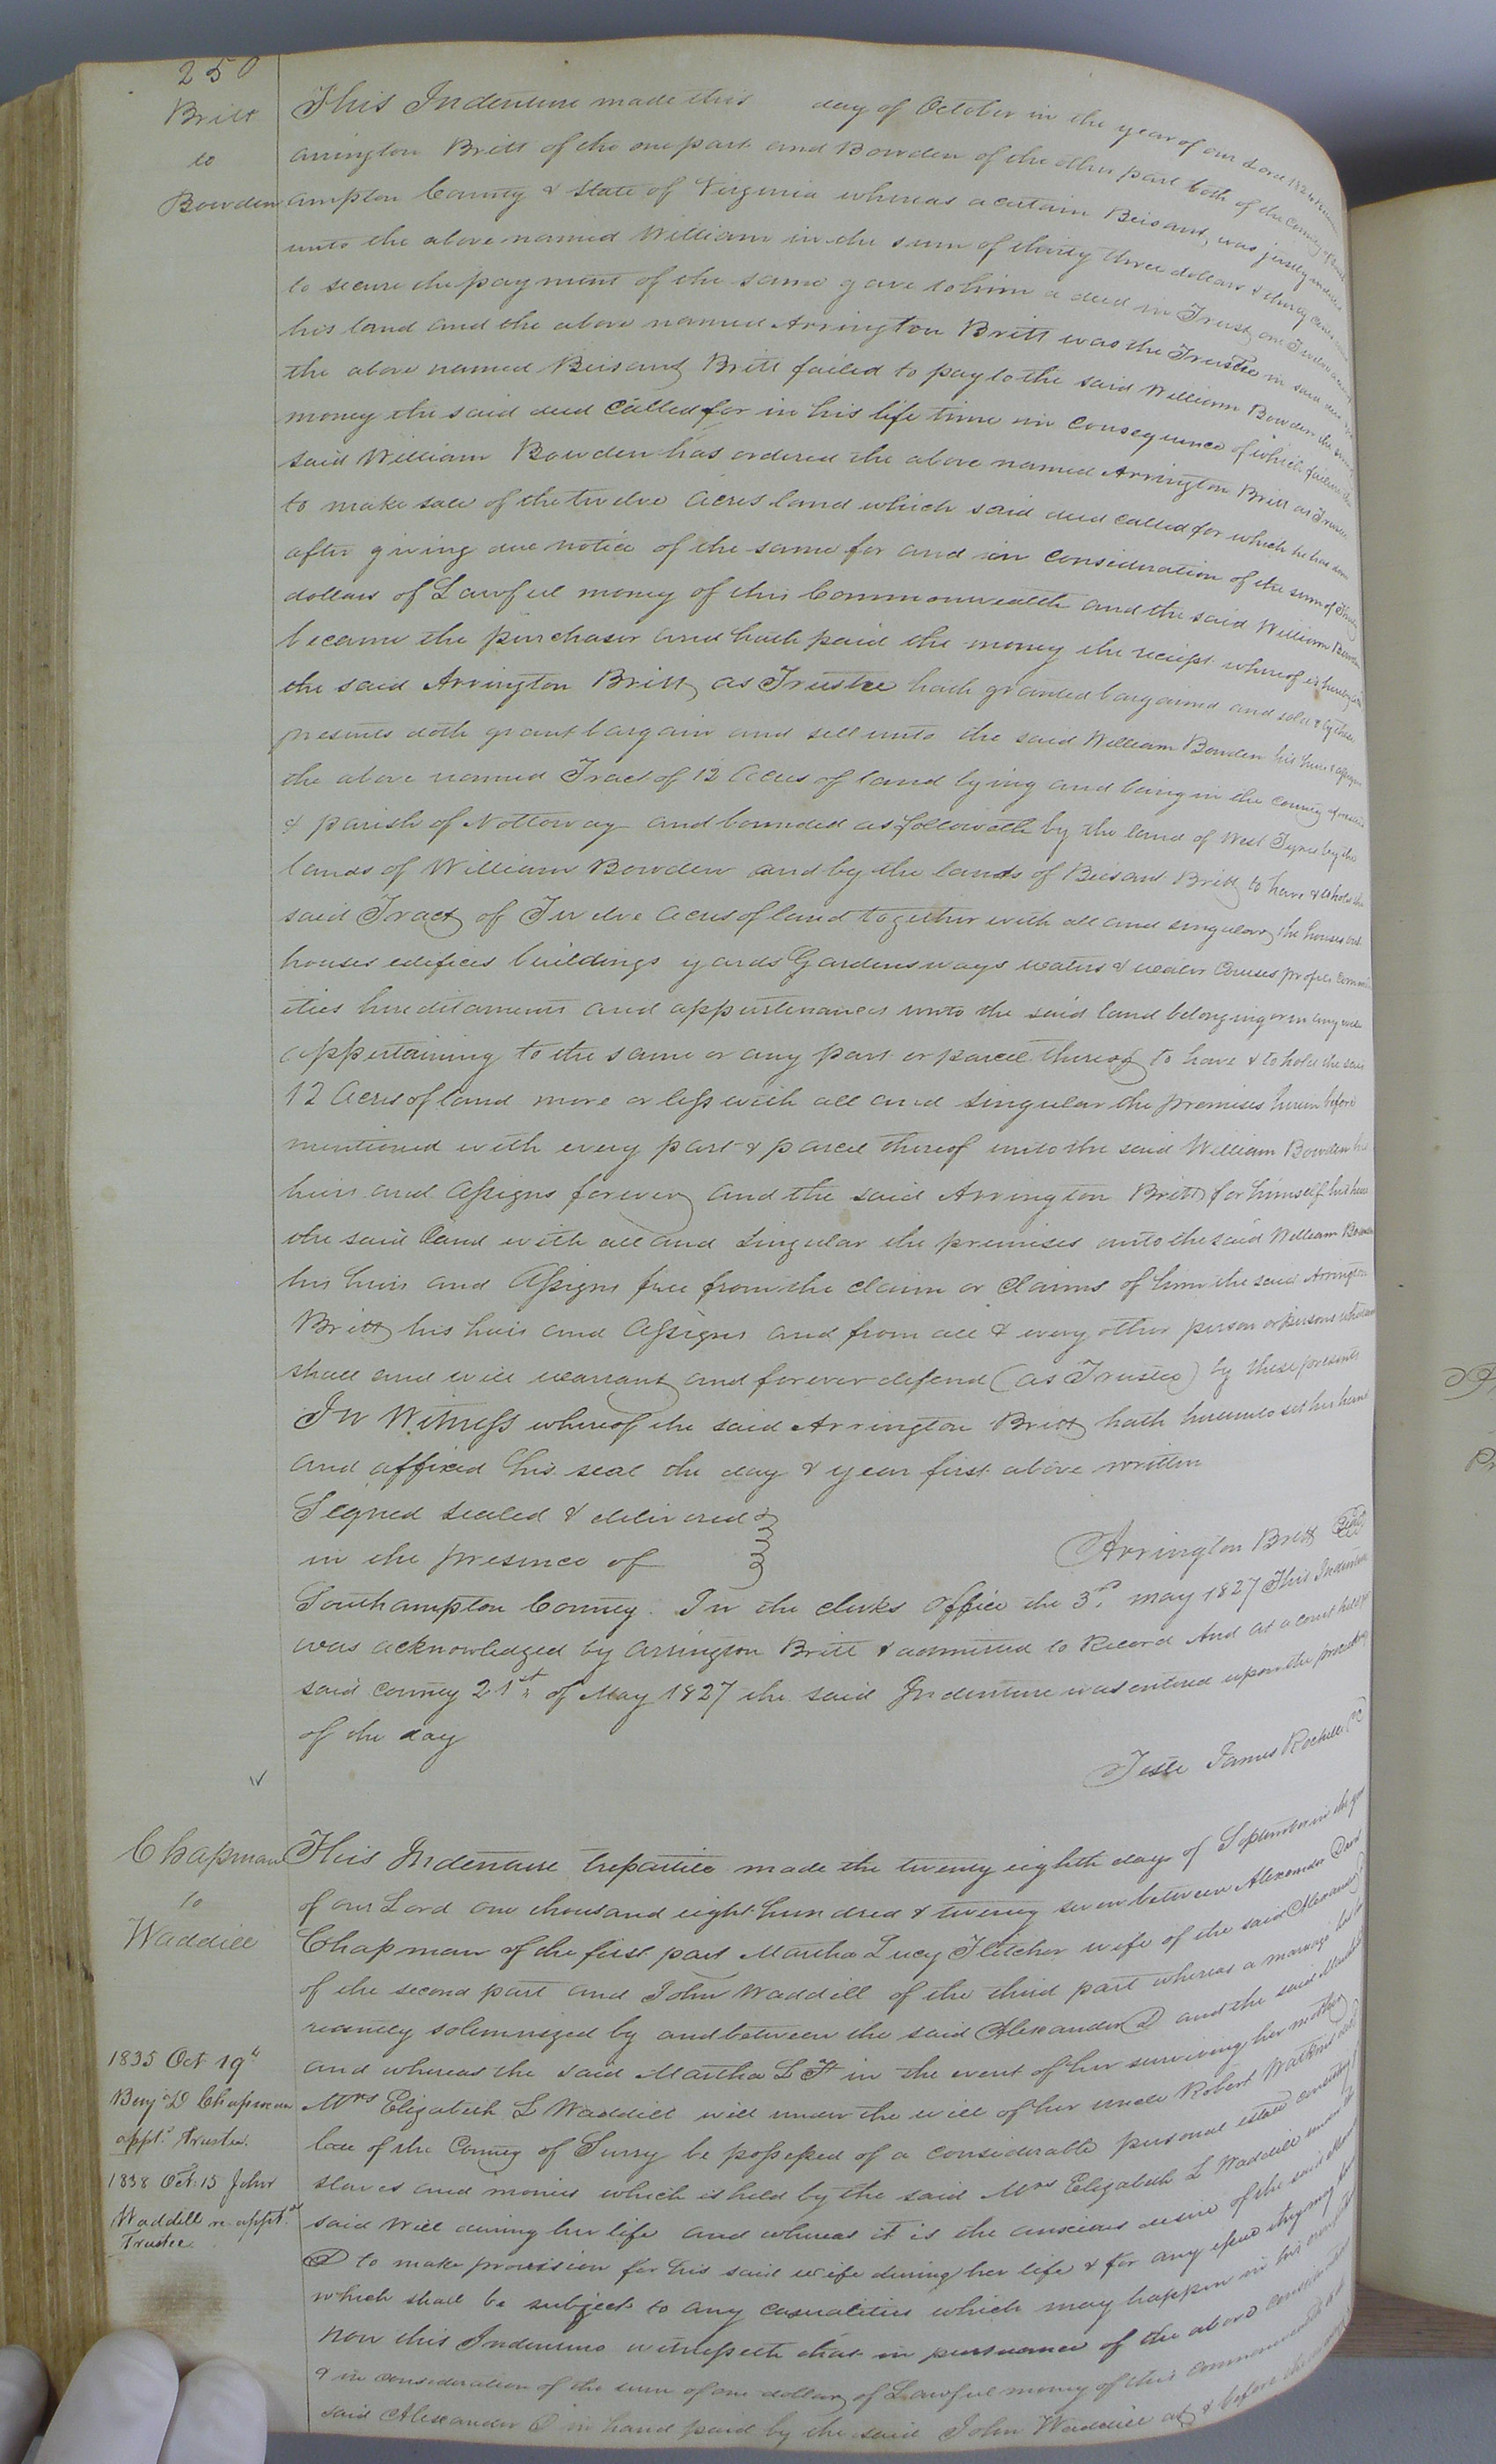 250
Britt
to
Bowden
This Indenture made this day of October in the year of our Lord 1826 between
Arrington Britt of the one part and Bowden of the other part both of the County of South
ampton County & State of Virginia whereas a certain Beisant, was justly indebted
unto the above named William in the sum of thirty three dollars & thirty cents
to secure the payment of the same gave to him a deed in Trust on Twelve acres
his land and the above named Arrington Britt was the Trustee in said deed
the above named Beisant Britt failed to pay to the said William Bowden the
money the said deed called for in his life time in consequence of which failure the
said William Bowden has ordered the above named Arrington Britt as Trustee
to make sale of the twelve acres land which said deed called for which he has done
after giving due notice of the same for and in consideration of the sum of
dollars of Lawful money of this Commonwealth and the said William Bowden
became the purchaser and hath paid the money the receipt whereof is hereby
the said Arrington Britt as Trustee hath granted bargained and sold & by these
presents doth grant bargain and sell unto the said William Bowden his heirs & assigns
the above named Tract of 12 acres of land lying and being in the county aforesaid
& parish of Nottoway and bounded as followeth by the land of West Tynes by the
lands of William Bowden and by the lands of Beisant Britt to have & to hold the
said Tract of Twelve acres of land together with all and singular the houses out
houses edifices buildings yards Gardens ways waters & water Courses profits commod
ities hereditaments and appurtenances unto the said land belonging or in any wise
appertaining to the same or any part or parcel thereof to have & to hold the said
12 acres of land more or less with all and singular the premises herein before
mentioned with every part & parcel thereof unto the said William Bowden his
heirs and assigns forever and the said Arrington Britt for himself his heirs
the said land with all and singular the premises unto the said William Bowden
his heirs and assigns free from the claim or claims of him the said Arrington
Britt his heirs and assigns and from all & every other person or persons whatsoever
shall and will warrant and forever defend (as Trustee) by these presents
In Witness whereof the said Arrington Britt hath hereunto set his hand
and affixed his seal the day & year first above written
Signed sealed & delivered
in the presence of
Arrington Britt Seal
Southampton County. In the clerks office the 3rd May 1827 This Indenture
was acknowledged by Arrington Britt & admitted to Record And at a court held for
said county 21st of May 1827 the said Indenture was entered upon the proceedings
of the day
Teste James Rochelle CC
Chapman
to
Waddill
This Indenture tripartite made the twenty eighth day of September in the year
of our Lord one thousand eight hundred & twenty seven between Alexander
Chapman of the first part Martha Lucy Fletcher wife of the said Alexander
of the second part and John Waddill of the third part whereas a marriage hath
recently solemnized by and between the said Alexander D and the said Martha
and whereas the said Martha L F in the event of her surviving her mother
Mrs Elizabeth L Waddill will under the will of her uncle Robert Watkins
late of the County of Surry be possessed of a considerable personal estate consisting
slaves and monies which is held by the said Mrs Elizabeth L Waddill under the
said Will during her life and whereas it is the anxious desire of the said
D to make provision for his said wife during her life & for any issue they may
which shall be subject to any casualities which may happen in his
now this Indenture witnesseth that in pursuance of the above consideration
& in consideration of the sum of one dollar of Lawful money of this Commonwealth
said Alexander D in hand paid by the said John Waddill at & before the
1835 Oct 19th
Benj D Chapman
appt.d trustee.
1838 Oct. 15 John
Waddill re-appt.d
Trustee